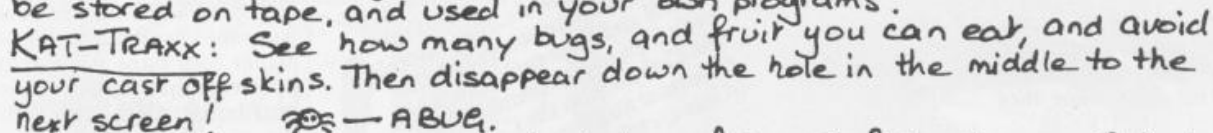 be stored on tape, and used in your own programs.
KAT-TRAXX: See how many bugs, and fruit you can eat, and avoid
your cast off skins. Then disappear down the hole in the middle to the
next screen! — A BUG.